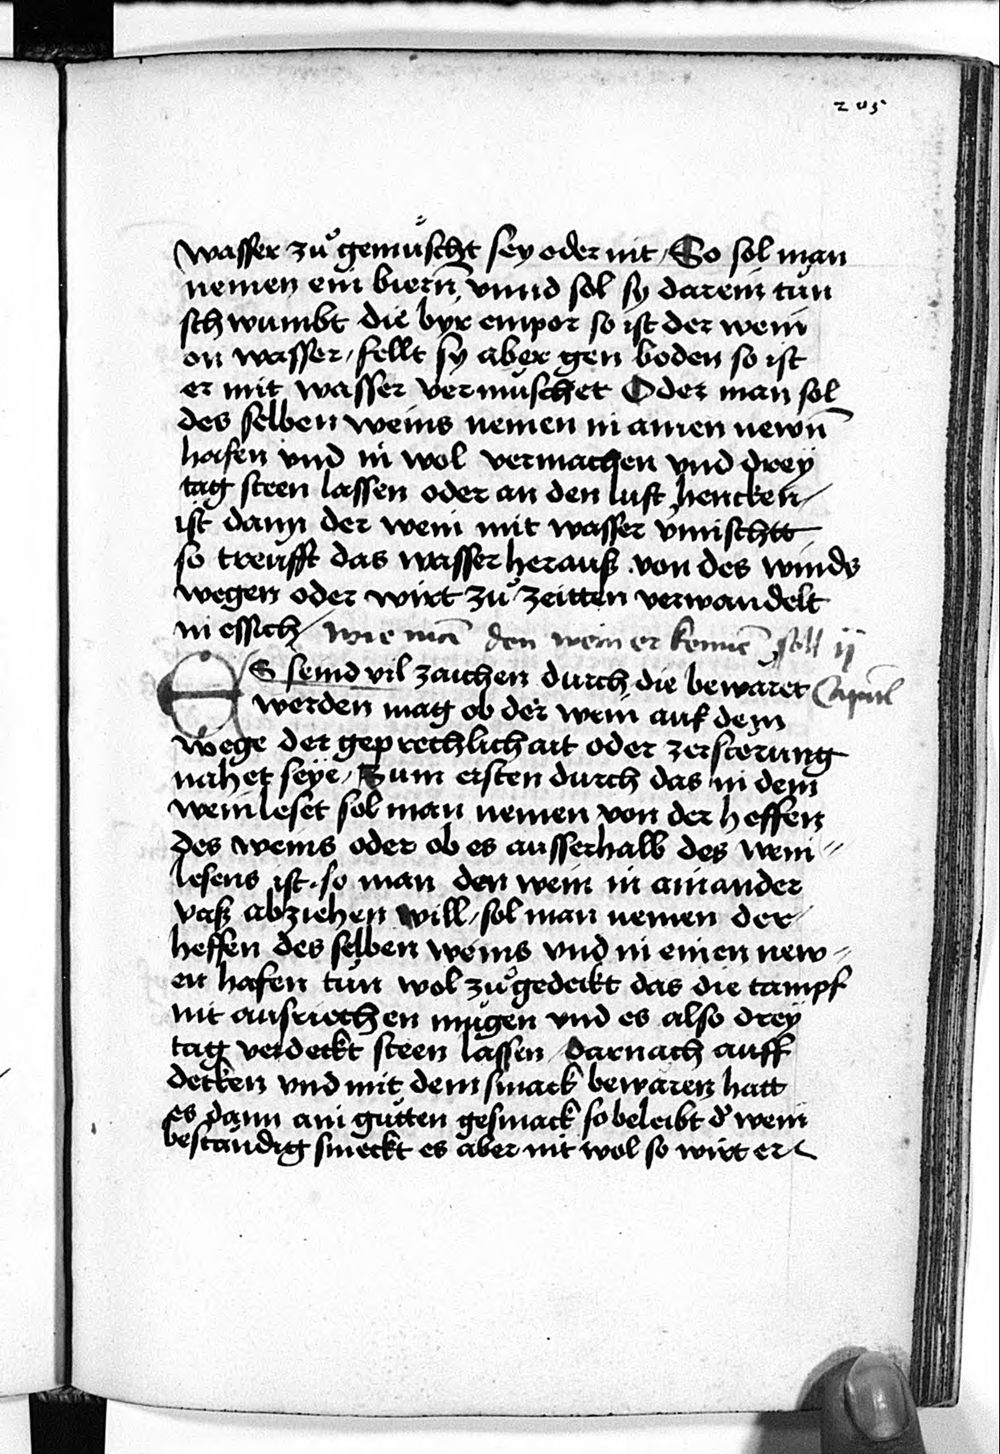 205
wasser zuͦ gemüscht sey oder nit / So sol man
nemen ein biern̄ vnnd sol sy darein tůn
schwumbt die byr empor so ist der wein
on wasser / fellt sy aber gen boden so ist
er mit wasser vermüschet Oder man sol
des selben weins nemen in ainen newn̄
hafen vnd in wol vermachen vnd drey
tag steen lassen oder an den luft hencken /
ist dann der wein mit wasser vmischtt
so treufft das wasser herauß von des winds
wegen oder wirt zuͦ zeitten verwandelt
in essich / wie mā den wein erkennē soll ij
ES seind vil zaichen durch die bewaret Capitl
werden mag ob der wein auf dem
wege der geprechlichait oder zerstorung
nahet seye / Zum ersten durch das in dem
weinleset sol man nemen von der heffen
des weins oder ob es ausserhalb des wein=
lesens ist · so man den wein in ainander
vaß abziehen will / sol man nemen der
heffen des selben weins vnd in einen new=
en hafen tůn wol zuͦgedeckt das die tampf
nit ausriechen mügen vnd es also drey
tag verdeckt steen lassen / darnach auff
decken vnd mit dem smack bewaren hatt
es dann ain gůtten gesmack so beleibt d' wein
bestandig smeckt es aber nit wol so wirt er